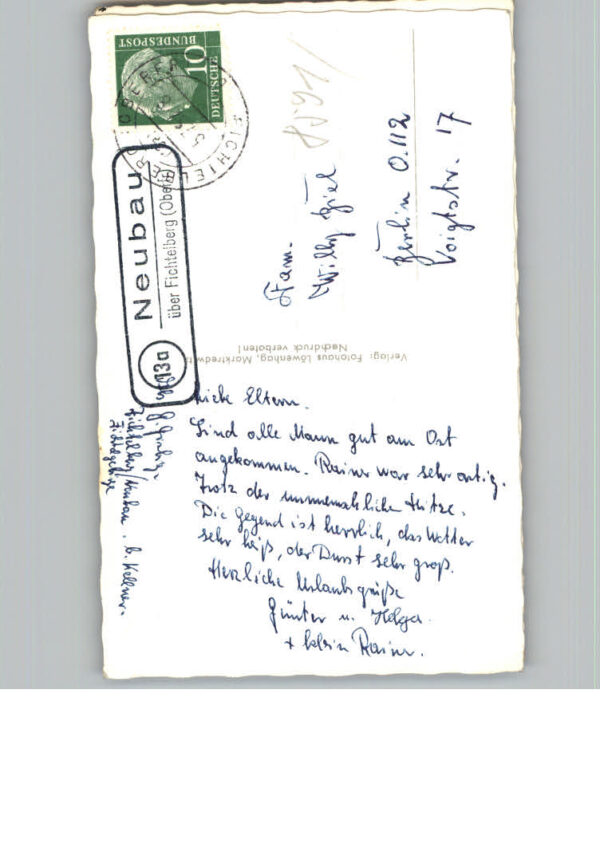 Liebe Eltern.
Sind alle Mann gut am Ort
angekommen. Rainer war sehr artig.
Trotz der unmenschlichen Hitze.
Die Gegend ist herrlich, das Wetter
sehr heiß, der Durst sehr groß.
Herzliche Urlaubsgrüße
Günter u. Helga.
+ klein Rainer.
Fichtelberg/Neubau. b. Kellner.
Fichtelgebirge
Verlag: Fotohaus Löwenhag, Marktredwitz
Nachdruck verboten!
Fam.
Willy
Berlin O.112
Voigtstr. 17
DEUTSCHE
BUNDESPOST
10
13a
Neubau
über Fichtelberg (Oberfr)